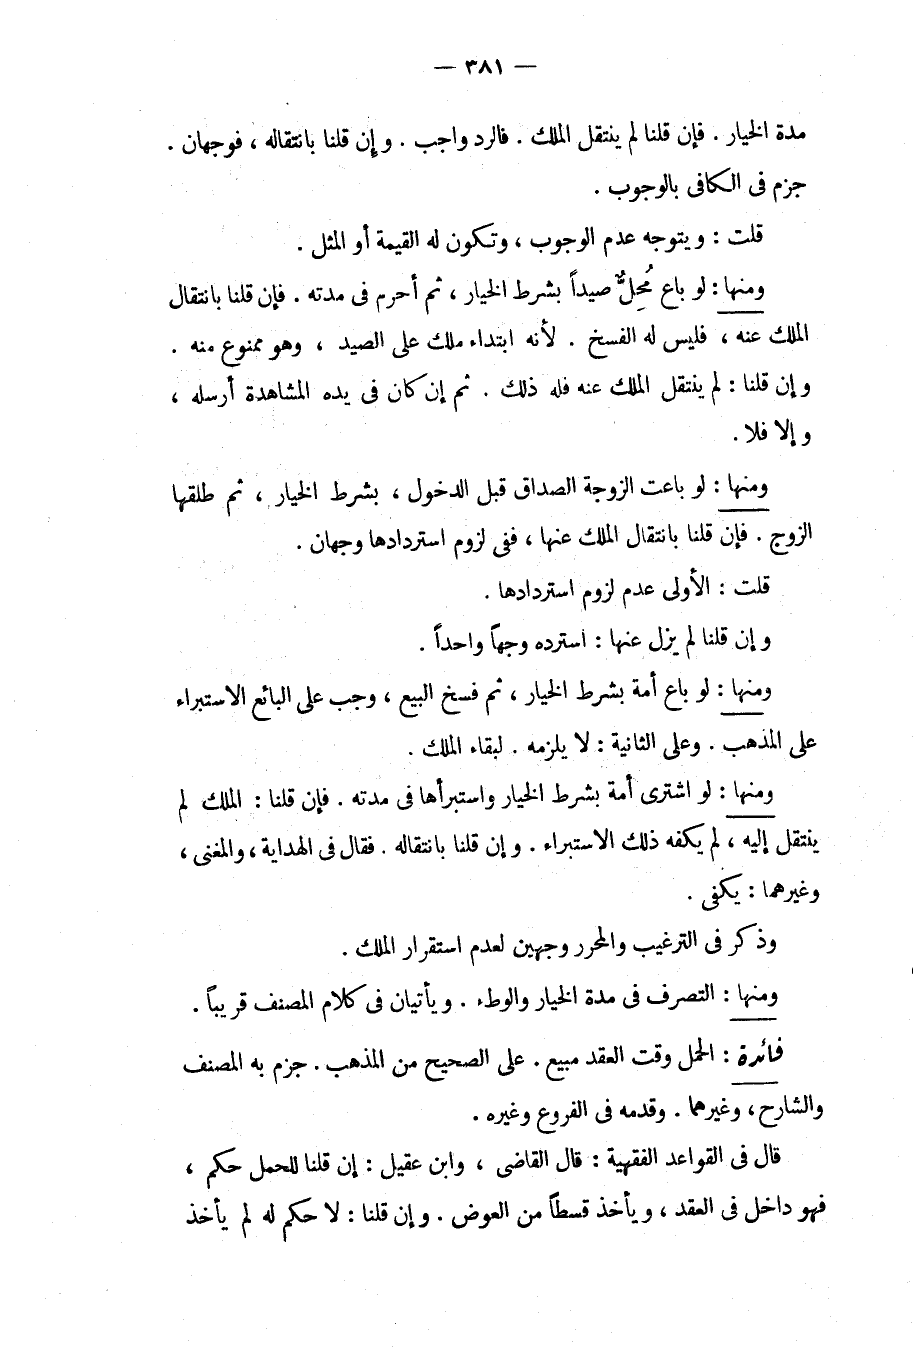 — ٣٨١ —
مدة الخيار . فإن قلنا لم ينتقل الملك . فالرد واجب . وإن قلنا بانتقاله ، فوجهان .
جزم فى الكافى بالوجوب .
قلت : ويتوجه عدم الوجوب ، وتكون له القيمة أو المثل .
ومنها : لو باع مُحِلٌّ صيداً بشرط الخيار ، ثم أحرم فى مدته . فإن قلنا بانتقال
الملك عنه ، فليس له الفسخ . لأنه ابتداء ملك على الصيد ، وهو ممنوع منه .
وإن قلنا : لم ينتقل الملك عنه فله ذلك . ثم إن كان فى يده المشاهدة أرسله ،
وإلا فلا .
ومنها : لو باعت الزوجة الصداق قبل الدخول ، بشرط الخيار ، ثم طلقها
الزوج . فإن قلنا بانتقال الملك عنها ، ففى لزوم استردادها وجهان .
قلت : الأولى عدم لزوم استردادها .
وإن قلنا لم يزل عنها : استرده وجهاً واحداً .
ومنها : لو باع أمة بشرط الخيار ، ثم فسخ البيع ، وجب على البائع الاستبراء
على المذهب . وعلى الثانية : لا يلزمه . لبقاء الملك .
ومنها : لو اشترى أمة بشرط الخيار واستبرأها فى مدته . فإن قلنا : الملك لم
ينتقل إليه ، لم يكفه ذلك الاستبراء . وإن قلنا بانتقاله . فقال فى الهداية ، والمغنى ،
وغيرهما : يكفى .
وذكر فى الترغيب والمحرر وجهين لعدم استقرار الملك .
ومنها : التصرف فى مدة الخيار والوطء . ويأتيان فى كلام المصنف قريباً .
فائدة : الحمل وقت العقد مبيع . على الصحيح من المذهب . جزم به المصنف
والشارح ، وغيرهما . وقدمه فى الفروع وغيره .
قال فى القواعد الفقهية : قال القاضى ، وابن عقيل : إن قلنا للحمل حكم ،
فهو داخل فى العقد ، ويأخذ قسطاً من العوض . وإن قلنا : لا حكم له لم يأخذ